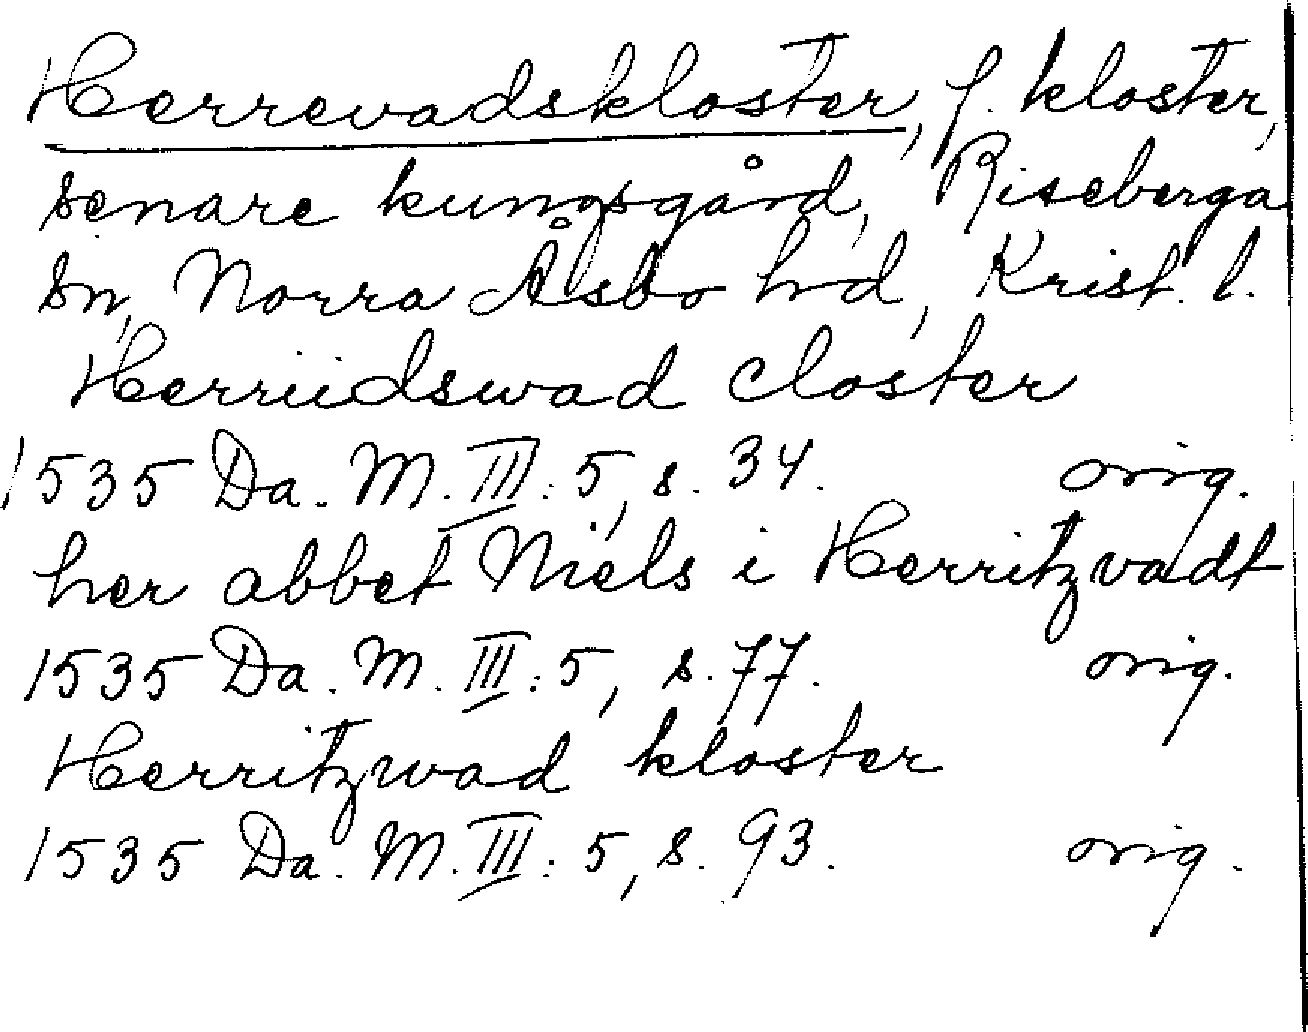 Herrevadskloster, f. kloster,
senare kungsgård, Riseberga
sn, Norra Åsbo hd, Krist. l.
Herriidswad closter
1535 Da. M. III: 5, s. 34. orig.
her abbet Niels i Herritzvadt
1535 Da. M. III: 5, s. 77. orig.
Herritzwad kloster
1535 Da. M. III: 5, s. 93. orig.